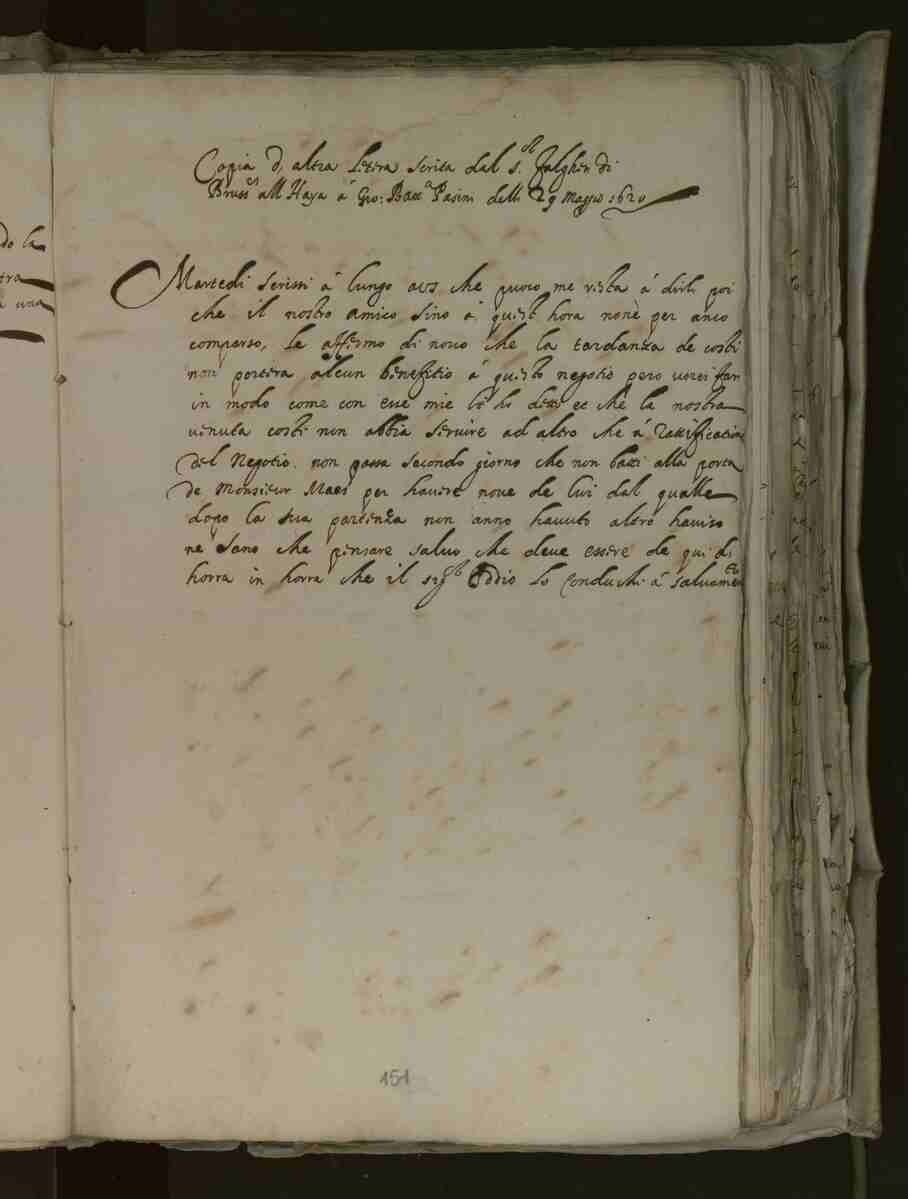 do la
tra
a una
Copia d, altra lettera scrita dal s.or falghen di
Bruss.es all Haya á Gio: Batt.a Pasini delli 29 Maggio 1620
Martedi scrissi á lungo a vs che puoco me resta á dirli poi
che il nostro amico sino á quest hora none per anco
comparso, le affermo di novo che la tardanza de costi
non portera alcun benefitio á questo negotio pero vorei far
in modo come con esse mie le ho detto et che la nostra
venuta costi non abbia servire ad altro che á rattificatione
del Negotio. non passa secondo giorno che non batti alla porta
de Monsieur Maes per havere nove de lui dal qualle
dopo la sua partenza non anno havuto altro haviso
ne sano che pensare salvo che deve essere de qui di
horra in horra che il sig.re Iddio lo conduchi á salvamento
151